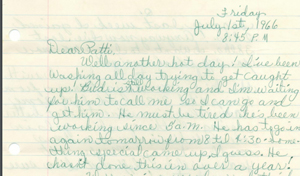 Friday
July 1st, 1966
8:45 P.M
Dear Patti,
Well another hot day! I've been
washing all day trying to get caught
up! Bud is still working and I'm waiting
for him to call me so I can go and
get him. He must be tired he's been
working since 8 a.m. He has to go in
again tomorrow from 8 til 4:30. Some-
thing special came up I guess. He
hasn't done this in over a year!